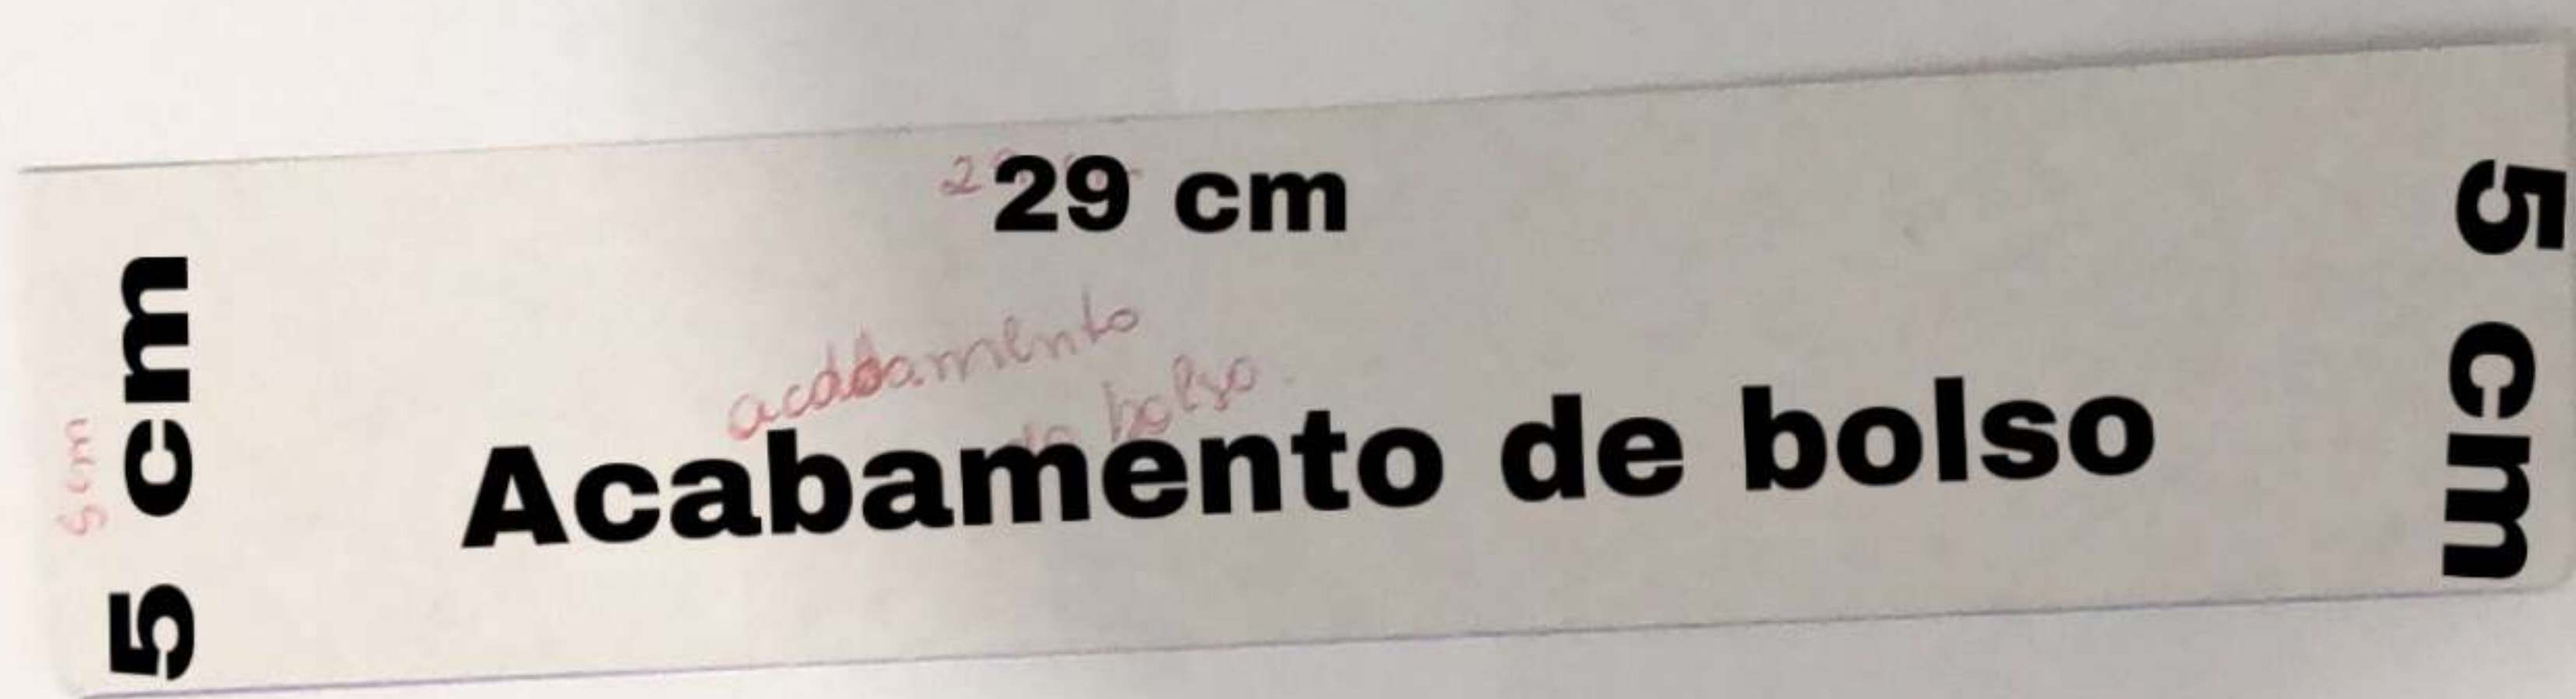 29 cm
5 cm
5 cm
5 cm
acabamento
de bolso.
Acabamento de bolso